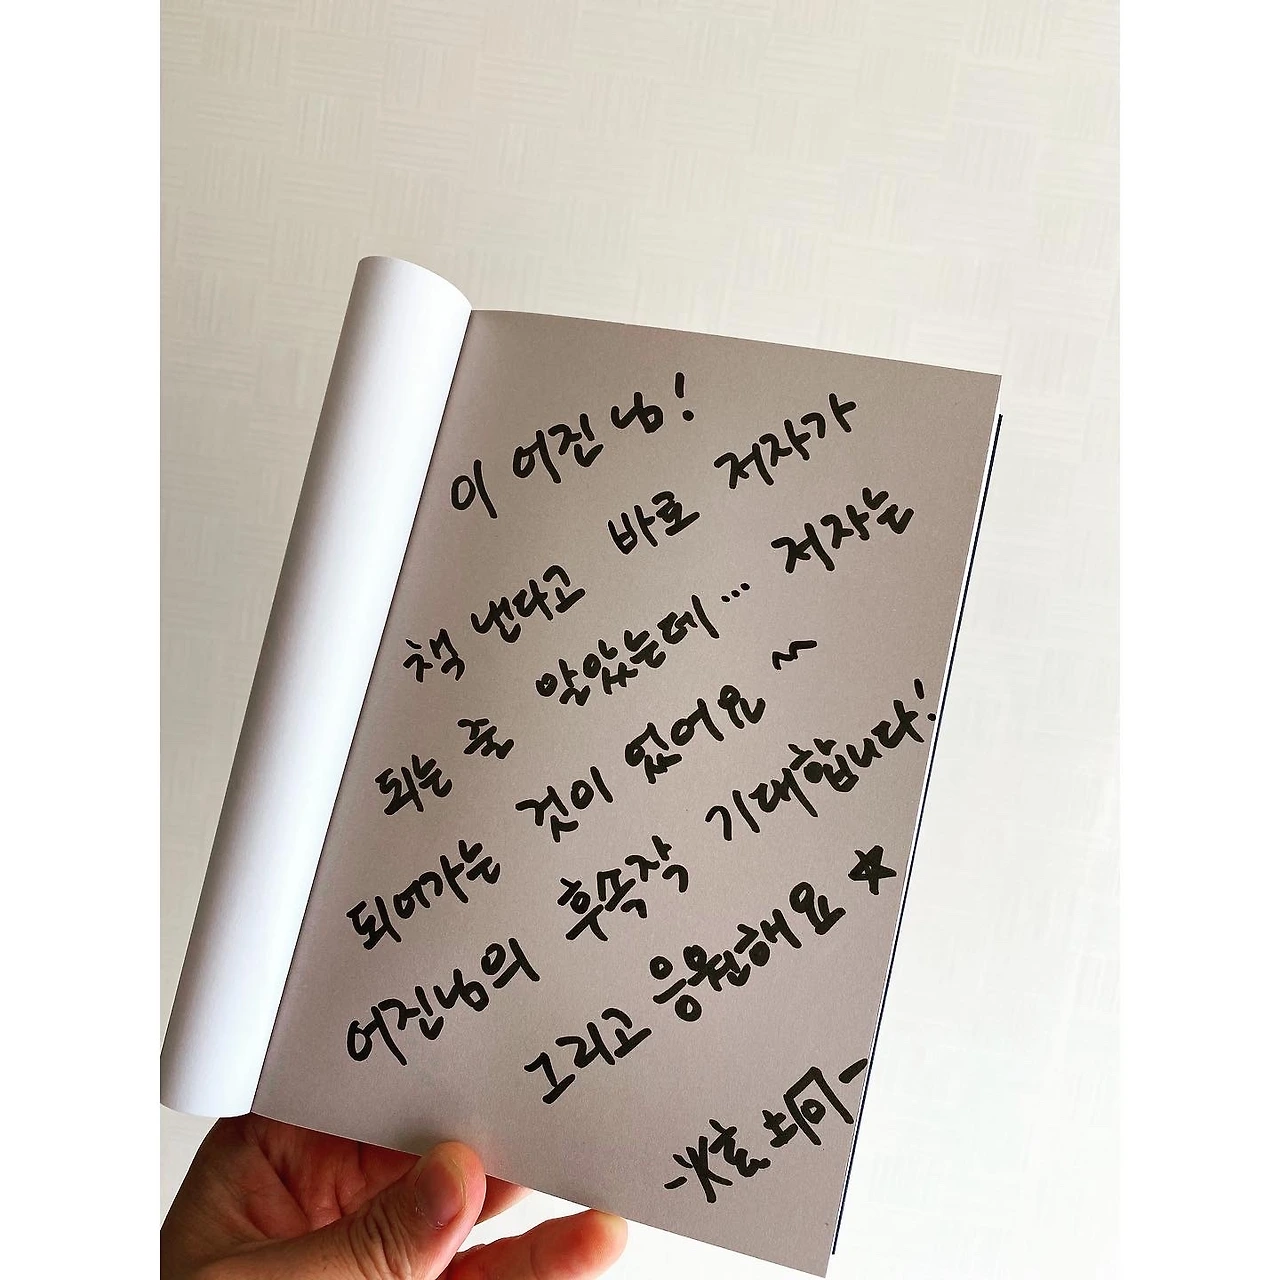 이 어진 님!
책 낸다고 바로 저자가
되는 줄 알았는데... 저자는
되어가는 것이 었어요~
어진님의 후속작 기대합니다!
그리고 응원해요 ☆